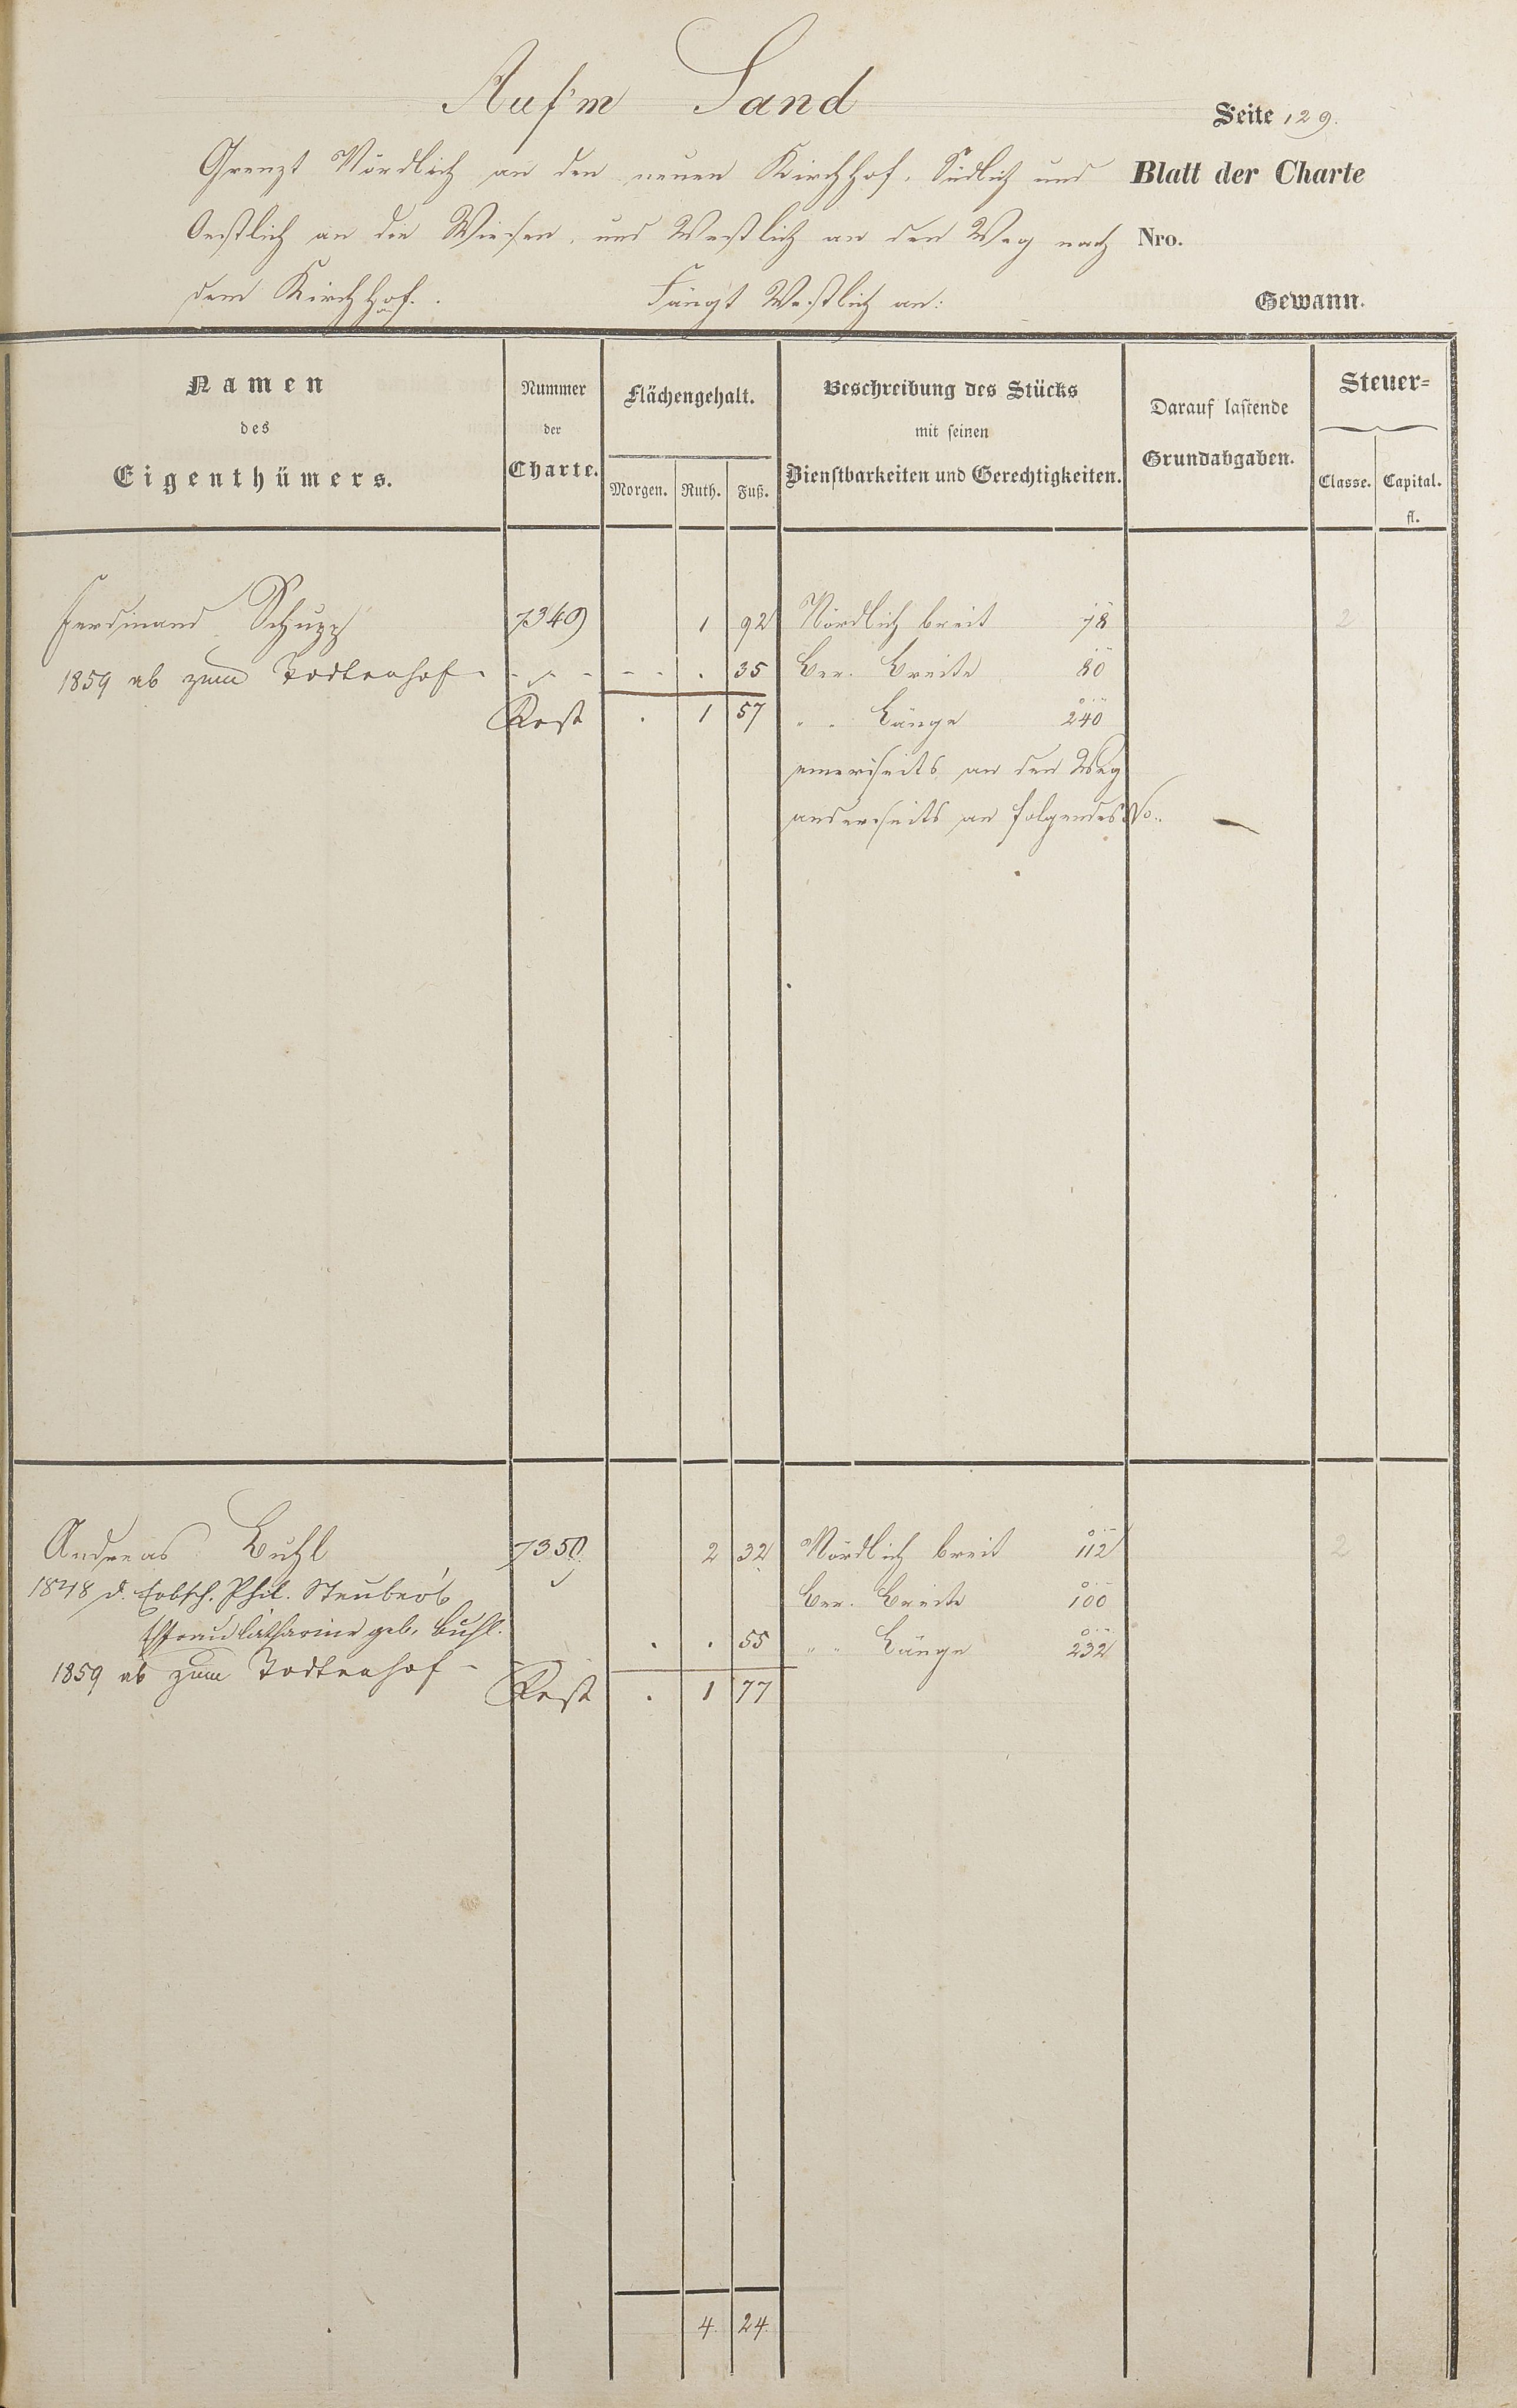 Auf'm Sand
Seite 129.
Grenzt Nördlich an den neuen Kirchhof, Südlich und
Blatt der Charte
Oestlich an die Wiesen, und Westlich an den Weg nach
Nro.
dem Kirchhof. Fängt Westlich an:
Gewann.
Namen des Eigenthümers.
Nummer der Charte.
Flächengehalt.
Morgen. Ruth. Fuß.
Beschreibung des Stücks
mit seinen
Dienstbarkeiten und Gerechtigkeiten.
Darauf lastende
Grundabgaben.
Steuer=
Classe. Capital.
fl.
Ferdinand Schupp 7349 1 92 Nördlich breit 78 2
1859 ab zum Todtenhof - - - - . 35 Ber. Breite 80
Rest . 1 57 " " Länge 240
einerseits an den Weg
anderseits an folgendes No.
Andreas Buhl 7350. 2 32 Nördlich breit 112 2
1848 d. Erbsch. Phil. Steuber's Ber. Breite 100
Ehefrau Catharine geb. Buhl. . . 55 " " Länge 232
1859 ab zum Todtenhof -
Rest . 1 77
4. 24.